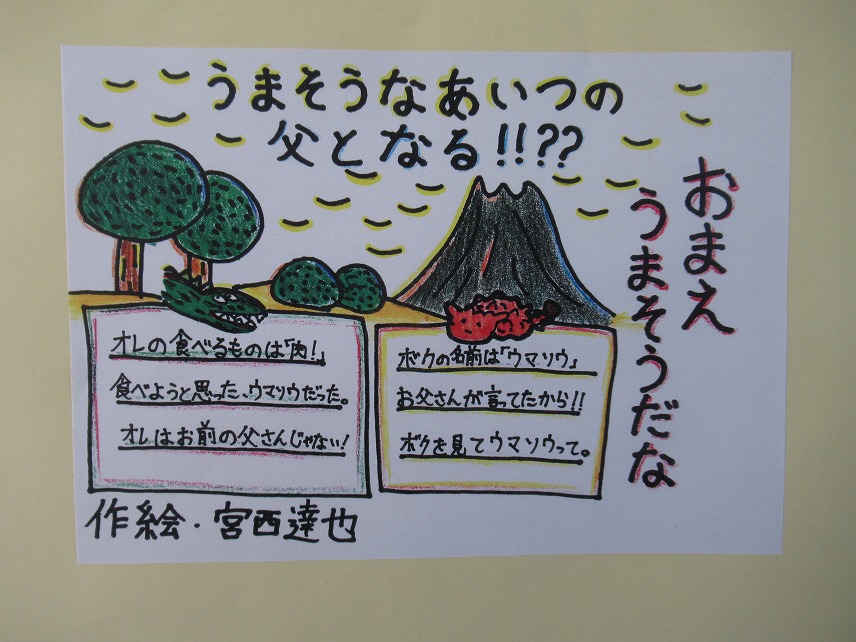 うまそうなあいつの
父となる!!??
おまえ
うまそうだな
オレの食べるものは「肉!」
食べようと思った、ウマソウだった。
オレはお前の父さんじゃない!
ボクの名前は「ウマソウ」
お父さんが言ってたから!!
ボクを見てウマソウって。
作絵・宮西達也